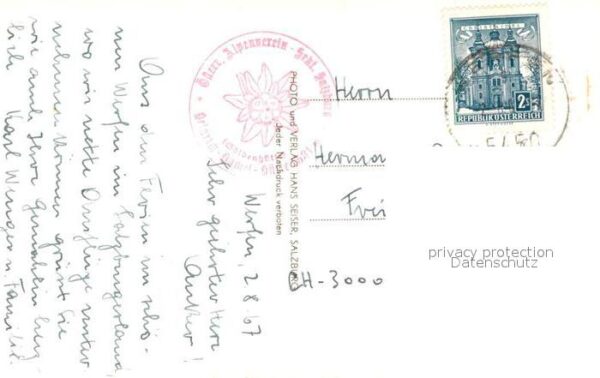 Werfen, 2.8.67
Sehr geehrter Herr
Anker!
Aus den Ferien im schö-
nen Werfen im Salzburgerland,
wo wir nette Ausflüge unter
nehmen können grüsst Sie
wie auch Ihre Gemahlin herz-
lich Karl Wenger u. Familie.
Österr. Alpenverein
PHOTO und VERLAG HANS SEISER, SALZBURG
Jeder Nachdruck verboten
Herrn
Herma
Frei
CH-3000
2S
REPUBLIK ÖSTERREICH
5450
privacy protection
Datenschutz